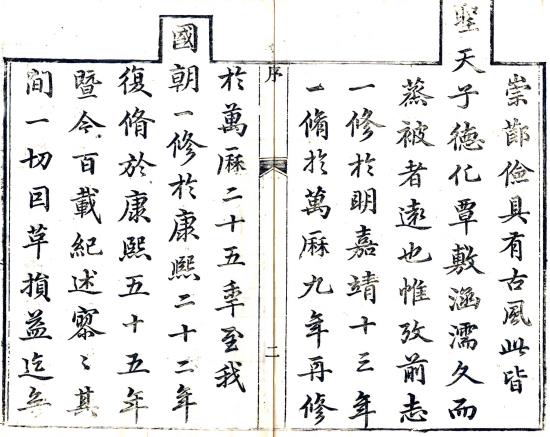 崇節儉具有古風此皆
聖天子德化覃敷涵濡久而
蒸被者遠也惟攷前志
一修於明嘉靖十三年
一脩於萬厤九年再修
序
二
於萬厤二十五年至我
國朝一修於康熙二十二年
復脩於康熙五十五年
暨今百載紀述寥〻其
間一切因革損益迄無